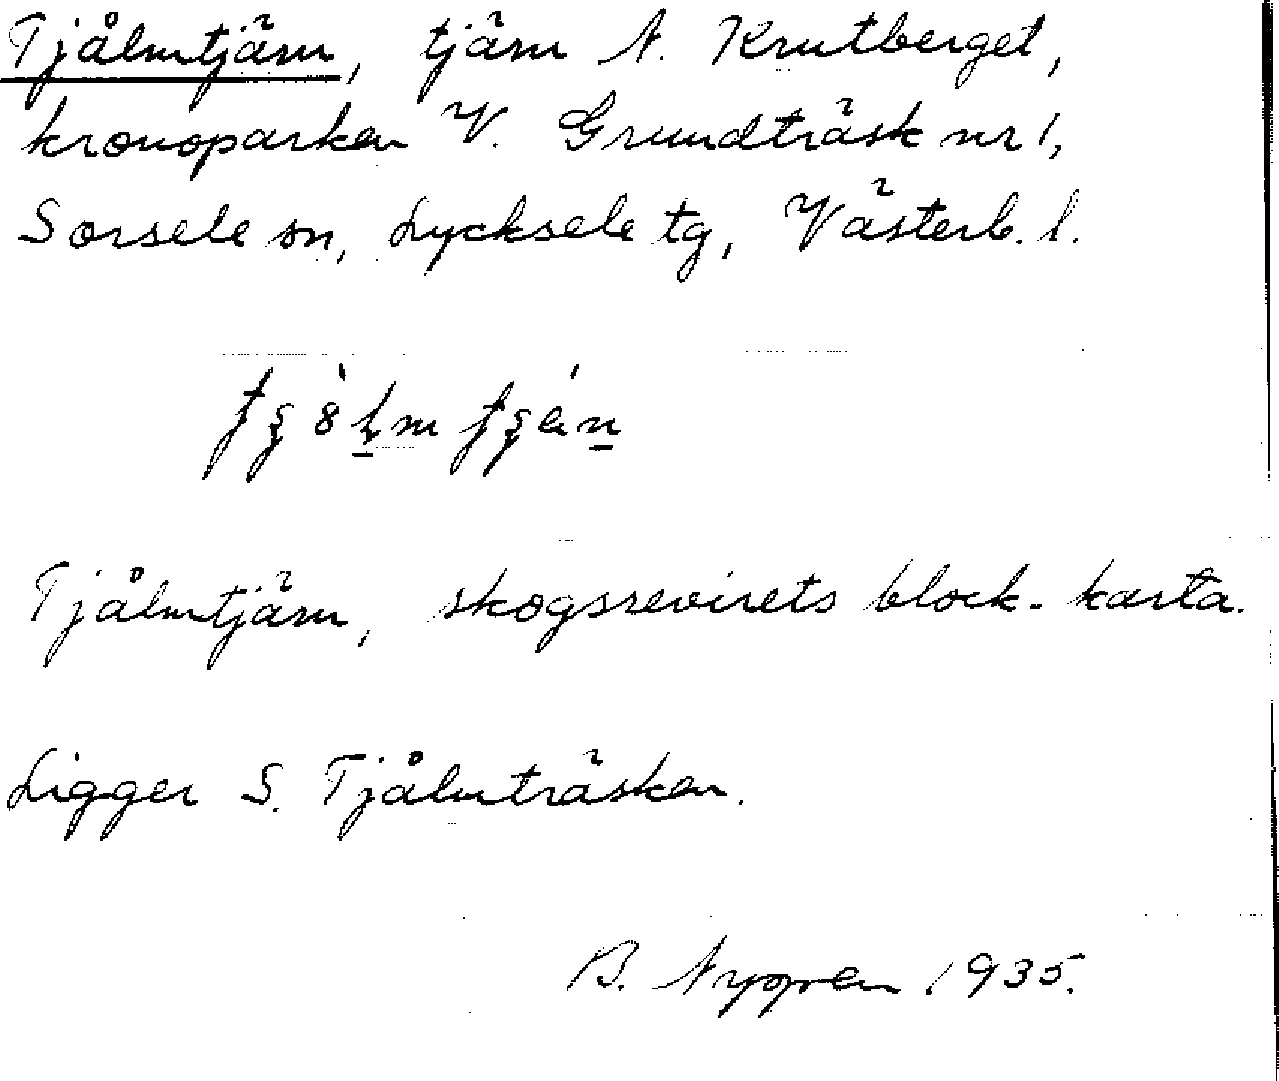 Tjålmtjärn, tjärn N. Krutberget,
kronoparken V. Grundträsk nr 1,
Sorsele sn, Lycksele tg, Västerb. l.
Tjålmtjärn, skogsrevirets block-karta.
Ligger S. Tjålmträsken.
B. 1935.